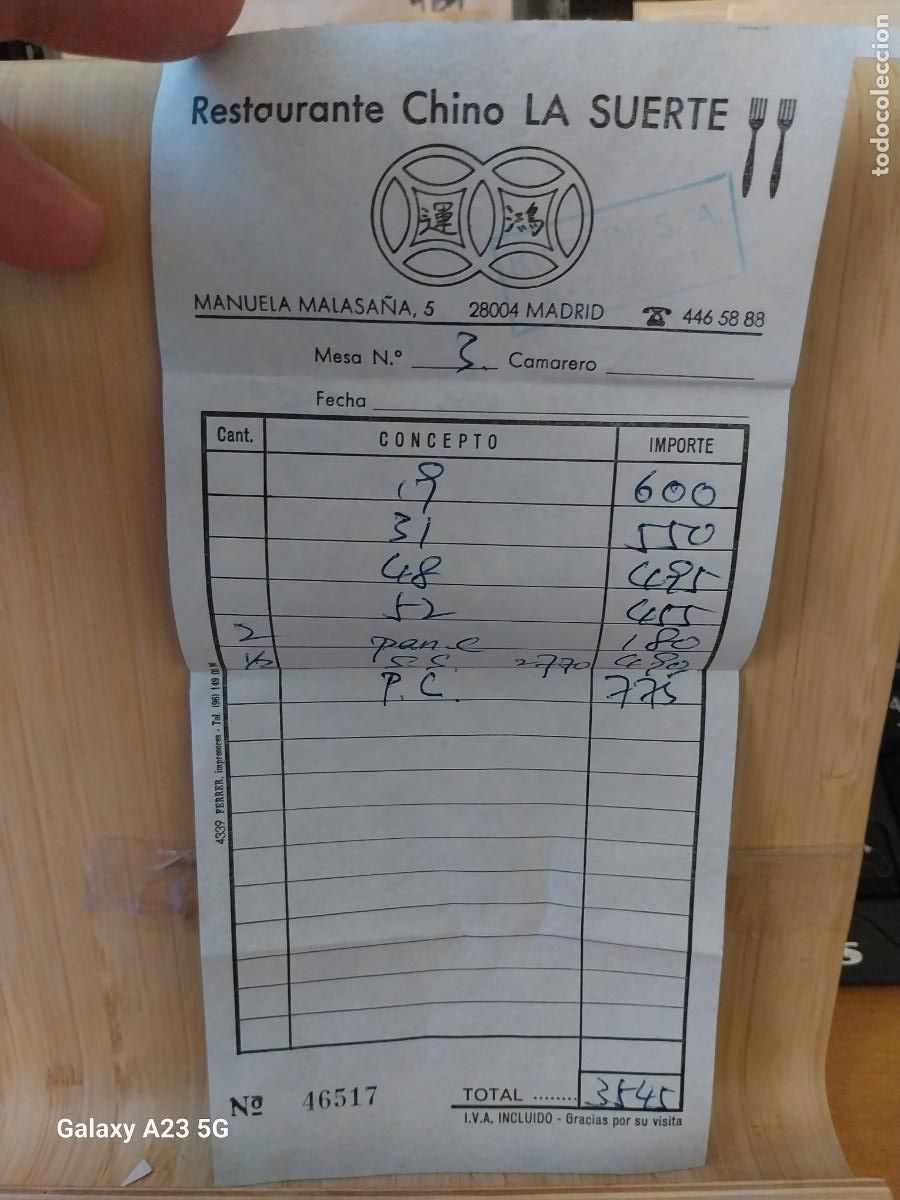 Restaurante Chino LA SUERTE
運 鴻
MANUELA MALASAÑA, 5 28004 MADRID ☎ 446 58 88
Mesa N.º 3. Camarero
Fecha
Cant. CONCEPTO IMPORTE
19 600
31 550
48 495
52 455
2 pan. 180
1/2 2770 490
P.C. 775
4339 FERRER, impresores - Tel. (96) 149
Nº 46517 TOTAL ........ 3545
I.V.A. INCLUIDO - Gracias por su visita
todocoleccion
Galaxy A23 5G
S